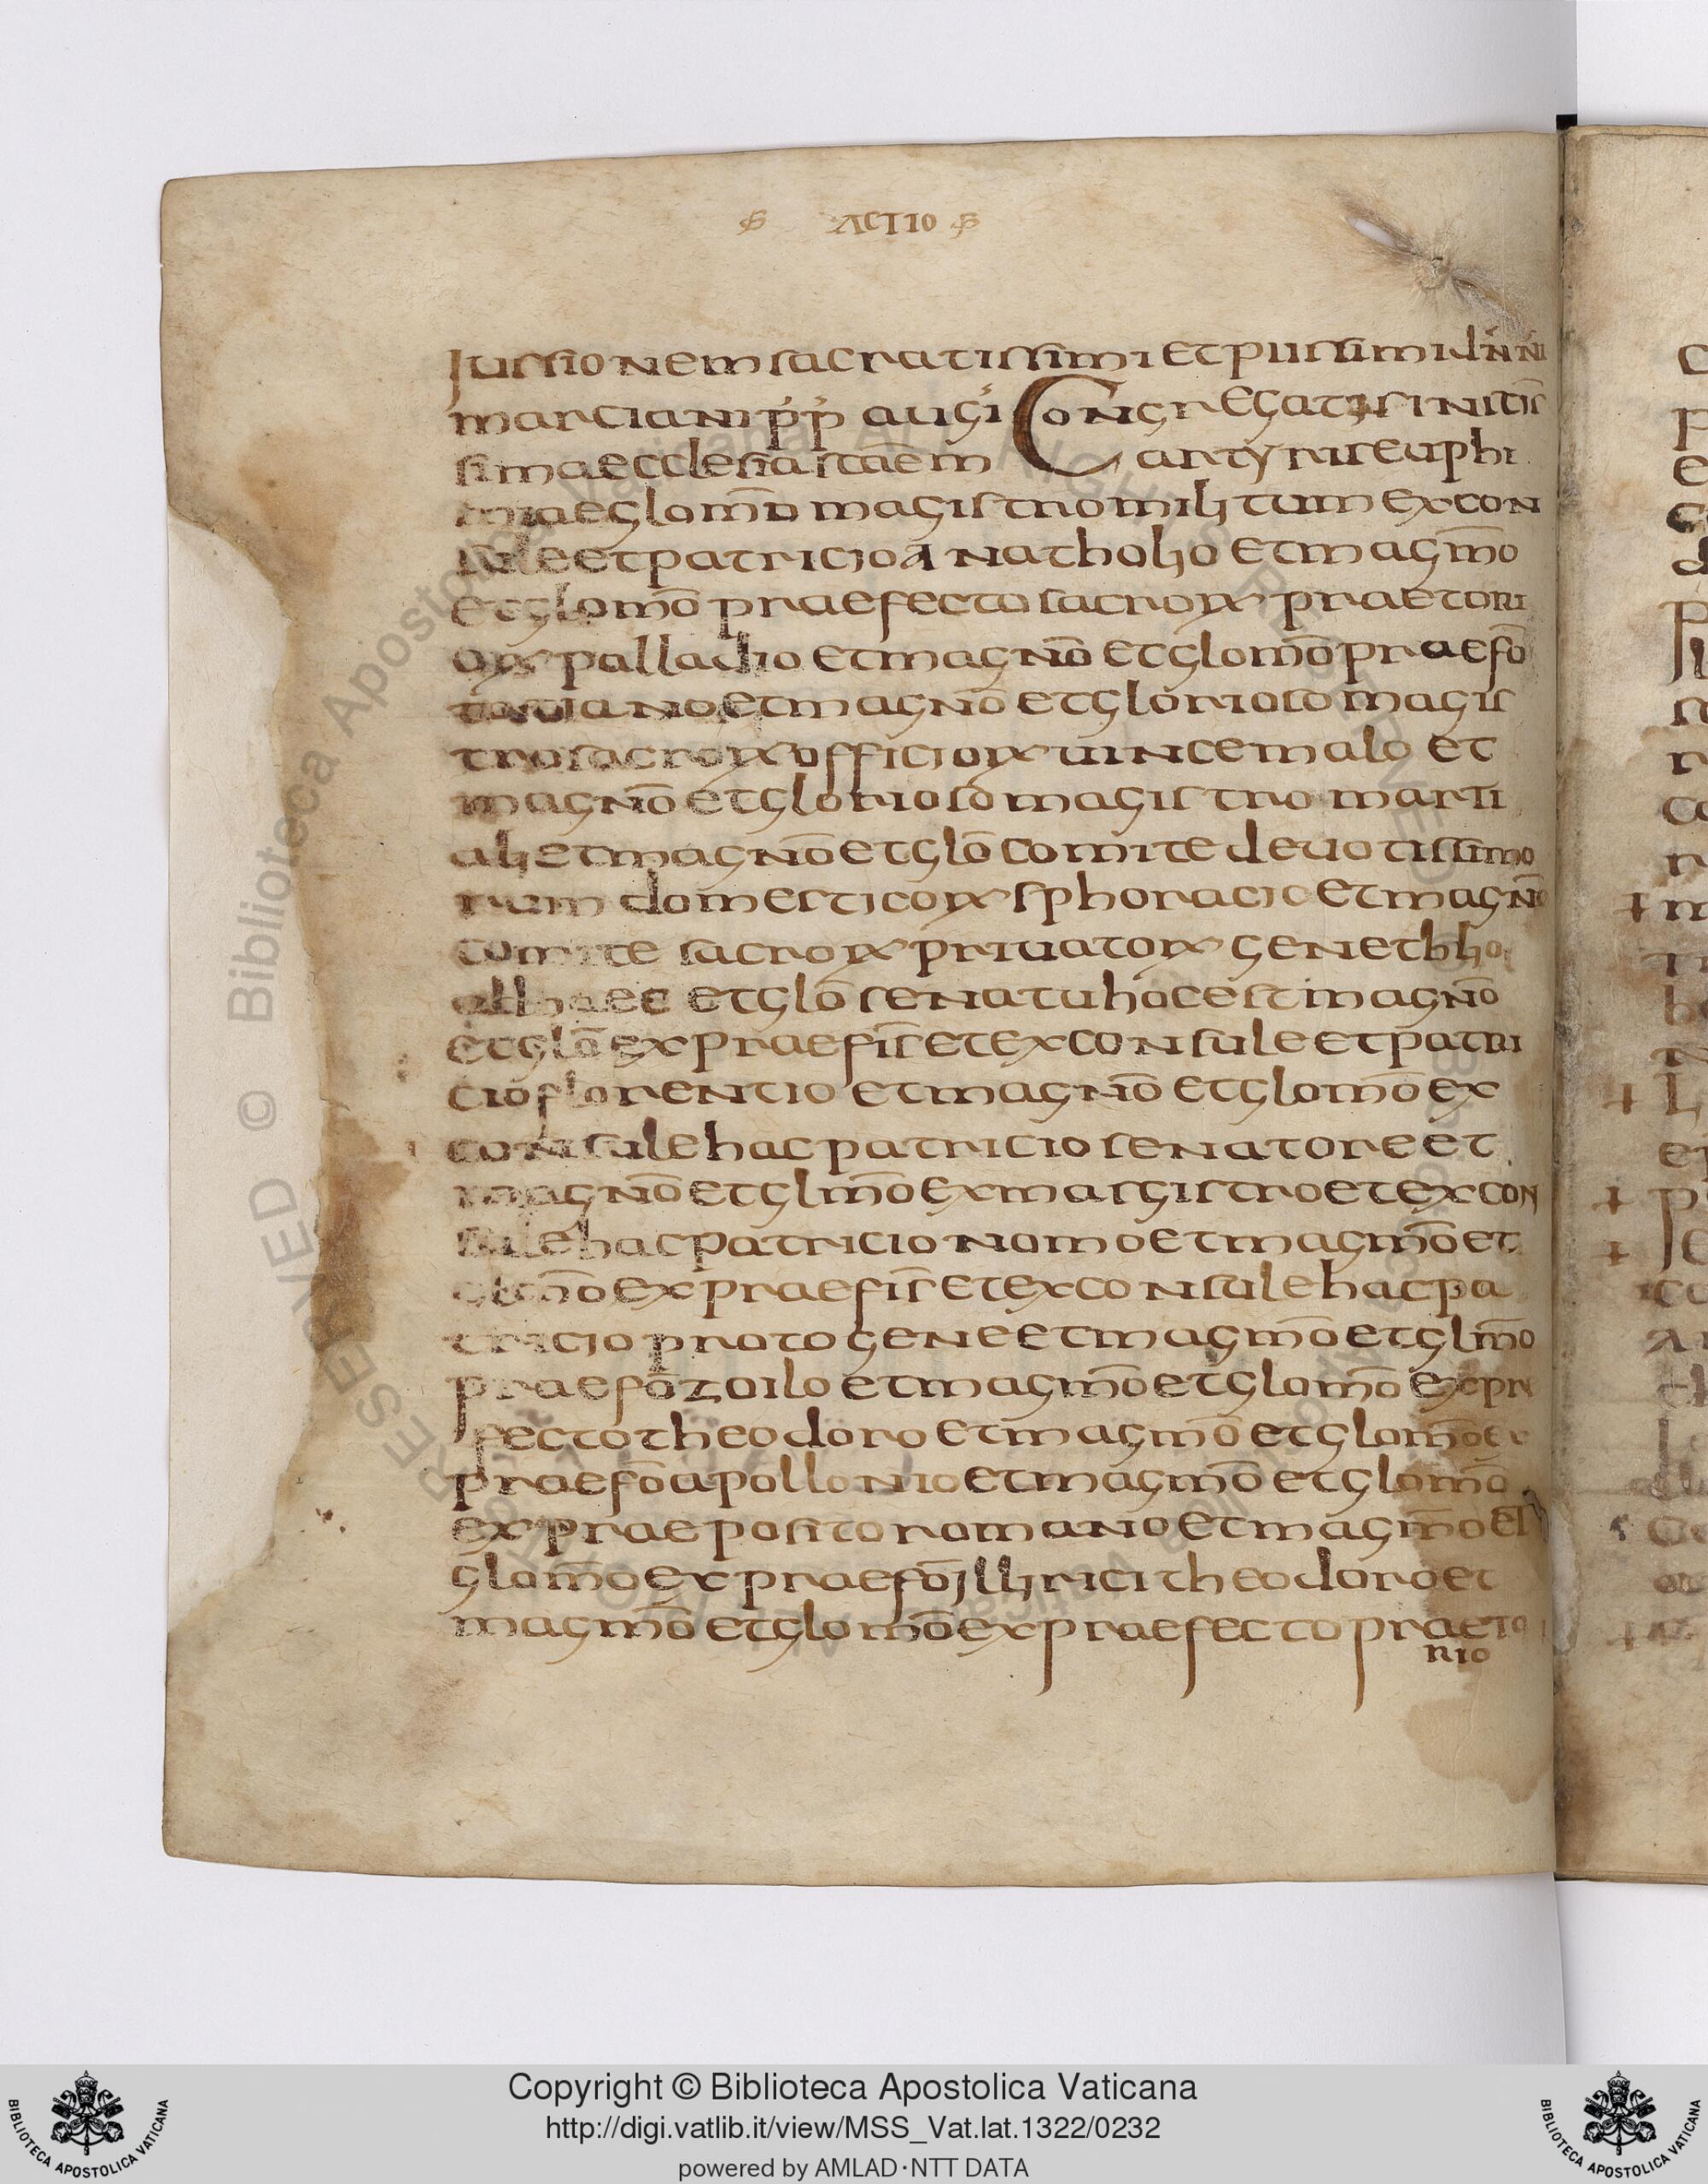 ACTIO
Iussionem sacratissimi et piissimi dn̄ ni
marciani p̄p̄ augi Congregatis in itis
sima ecclesia sc̄ae m artyris euphi
miae glom̄o magistro militum ex con
sule et patricio anatholio et magm̄o
et glom̄o praefecto sacroꝝ praetori
oꝝ palladio et magnō et glom̄o praefō
tatiano et magnō et glorioso magis
tro sacroꝝ officioꝝ uincemalo et
magnō et glorioso magistro marti
ali et magnō et glō comite deuotissimo
rum domesticoꝝ sphoracio et magnō
comite sacroꝝ priuatoꝝ genethlio
et glō senatu hoc est magnō
et glō ex praefis̄ et ex consule et patri
cio florentio et magnō et glom̄o ex
consule hac patricio senatore et
magnō et glm̄o ex masgistro et ex con
sule hac patricio nomo et magm̄o et
glom̄o ex praefis̄ et ex consule hac pa
tricio protogene et magm̄o et glm̄o
praefō zoilo et magm̄o et glom̄o ex prae
fecto theodoro et magm̄o et glom̄o ex
praefō apollonio et magm̄o et glom̄o
ex praeposito romano et magm̄o et
glom̄o ex praefō illirici theodoro et
magm̄o et glom̄o ex praefecto praeto
rio
Copyright © Biblioteca Apostolica Vaticana
http://digi.vatlib.it/view/MSS_Vat.lat.1322/0232
powered by AMLAD·NTT DATA